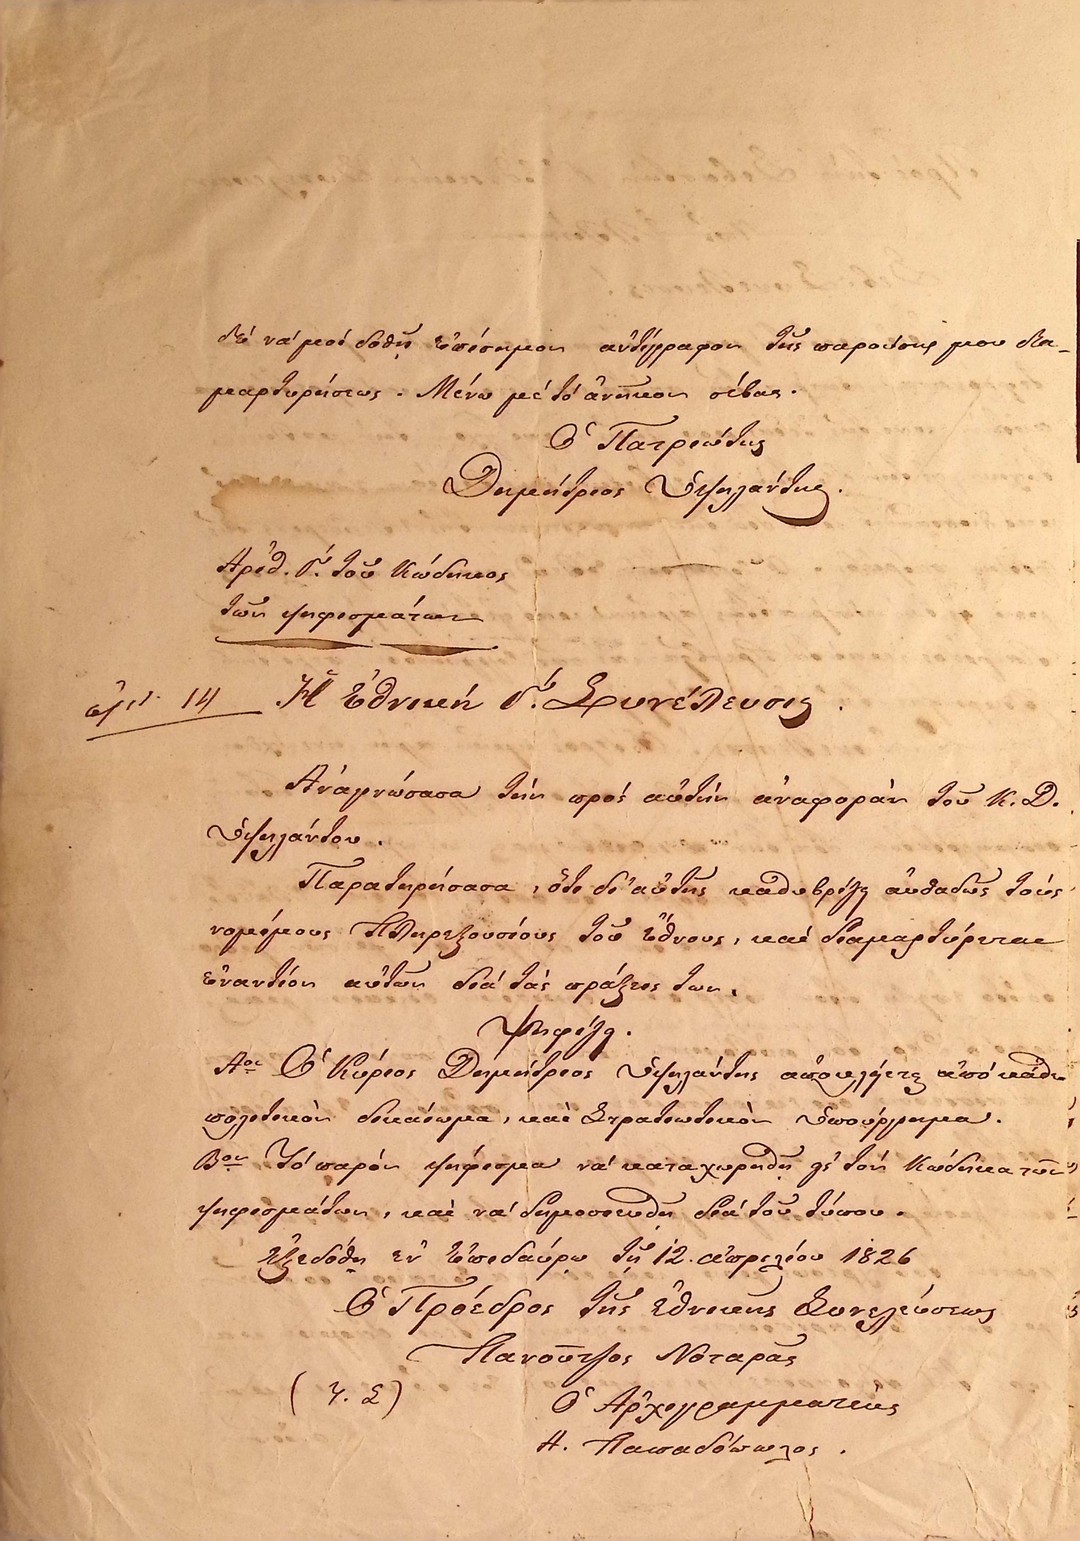 δὲ νὰ μοὶ δοθῇ ἐπίσημον ἀντίγραφον τῆς παρούσης μου δια-
μαρτυρήσεως. Μένω μὲ τὸ ἀνῆκον σέβας.
Ὁ Πατριώτης
Δημήτριος Ὑψηλάντης.
Ἀριθ. γ΄. τοῦ Κώδηκος
τῶν ψηφισμάτων
14 Ἡ Ἐθνικὴ γ΄. Συνέλευσις.
Ἀναγνώσασα τὴν πρὸς αὐτὴν ἀναφορὰν τοῦ Κ. Δ.
Ὑψηλάντου.
Παρατηρήσασα, ὅτι δι' αὐτῆς καθυβρίζει αὐθαδῶς τοὺς
νομίμους Πληρεξουσίους τοῦ Ἔθνους, καὶ διαμαρτύρεται
ἐναντίον αὐτῶν διὰ τὰς πράξεις των.
Ψηφίζει.
Αον Ὁ Κύριος Δημήτριος Ὑψηλάντης ἀποκλείεται ἀπὸ κάθε
πολιτικὸν δικαίωμα, καὶ Στρατιωτικὸν ὑπούργημα.
Βον Τὸ παρὸν ψήφισμα νὰ καταχωρηθῇ εἰς τὸν Κώδηκα τῶν
ψηφισμάτων, καὶ νὰ δημοσιευθῇ διὰ τοῦ τύπου.
Ἐξεδόθη ἐν Ἐπιδαύρῳ τῇ 12. ἀπριλίου 1826
Ὁ Πρόεδρος τῆς Ἐθνικῆς Συνελεύσεως
Πανοῦτζος Νοταρᾶς
(Τ. Σ) Ὁ Ἀρχιγραμματεὺς
Α. Παπαδόπωλος.